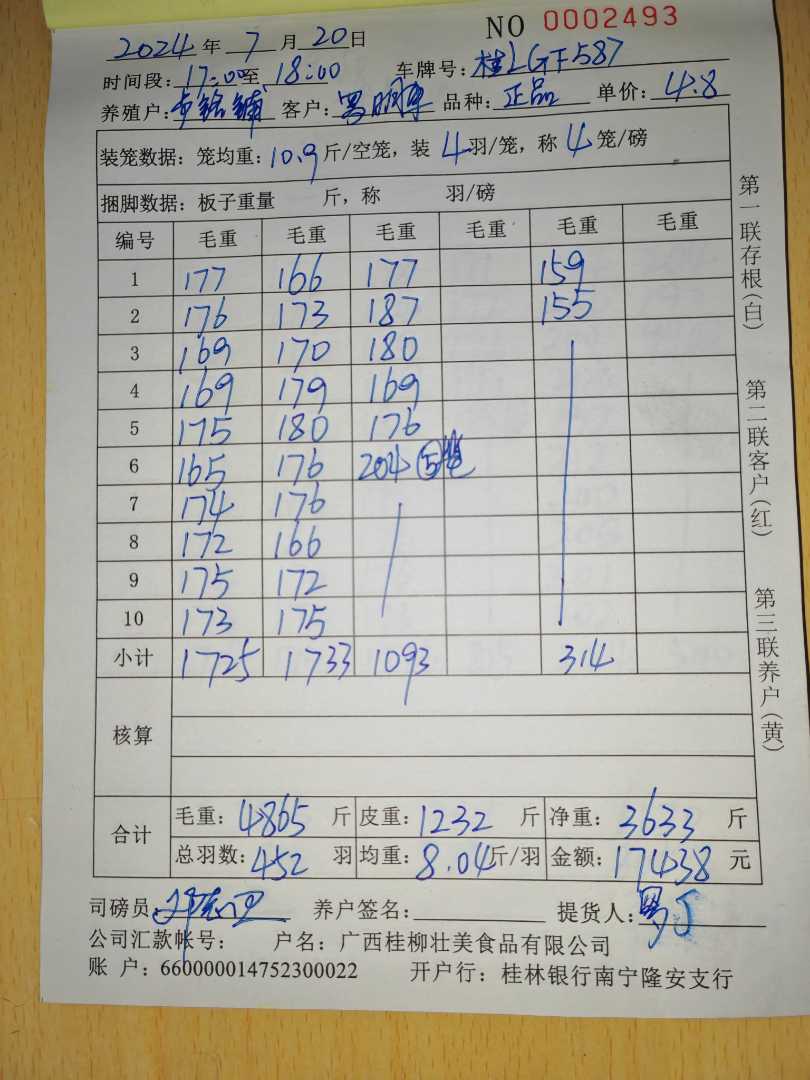 NO 0002493
2024年7月20日
时间段:17:00至18:00 车牌号:桂LGF587
养殖户: 客户:罗 品种:正品 单价:4.8
装笼数据:笼均重:10.9斤/空笼,装4羽/笼,称4笼/磅
捆脚数据:板子重量 斤,称 羽/磅
编号 毛重 毛重 毛重 毛重 毛重 毛重
1 177 166 177 159
2 176 173 187 155
3 169 170 180
4 169 179 169
5 175 180 176
6 165 176 204 ⑤笼
7 174 176
8 172 166
9 175 172
10 173 175
小计 1725 1733 1093 314
核算
合计 毛重:4865斤 皮重:1232斤 净重:3633斤
总羽数:452羽 均重:8.04斤/羽 金额:17438元
司磅员: 养户签名: 提货人:罗
公司汇款帐号: 户名:广西桂柳壮美食品有限公司
账 户:660000014752300022 开户行:桂林银行南宁隆安支行
第一联存根(白) 第二联客户(红) 第三联养户(黄)